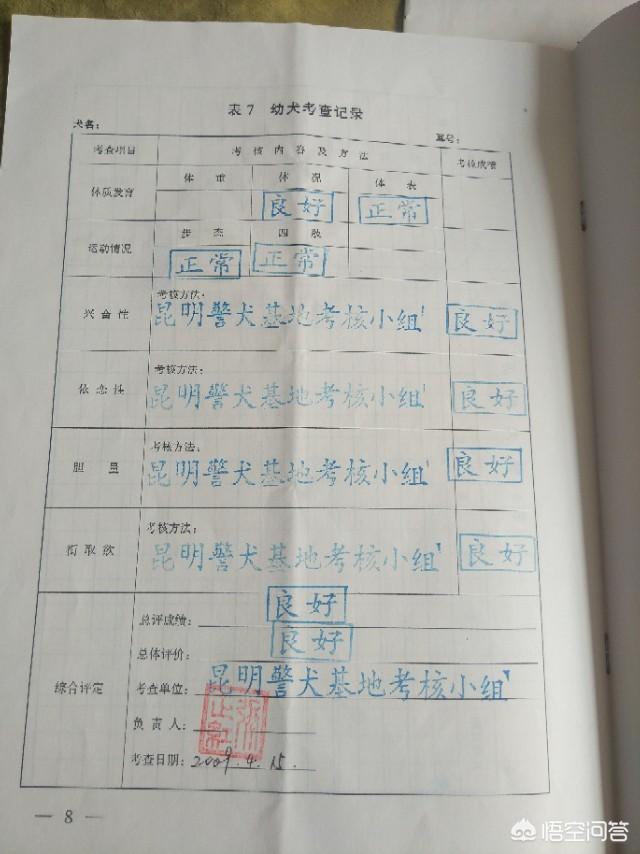 表7 幼犬考查记录
犬名： 耳号：
考查项目 考核内容及方法 考核成绩
体质发育 体重 体况 体表
良好 正常
运动情况 步态 四肢
正常 正常
兴奋性 考核方法：
昆明警犬基地考核小组 良好
依恋性 考核方法：
昆明警犬基地考核小组 良好
胆量 考核方法：
昆明警犬基地考核小组 良好
衔取欲 考核方法：
昆明警犬基地考核小组 良好
综合评定
总评成绩： 良好
总体评价： 良好
考查单位： 昆明警犬基地考核小组
负责人：
考查日期： 2009.4.15.
— 8 —
悟空问答